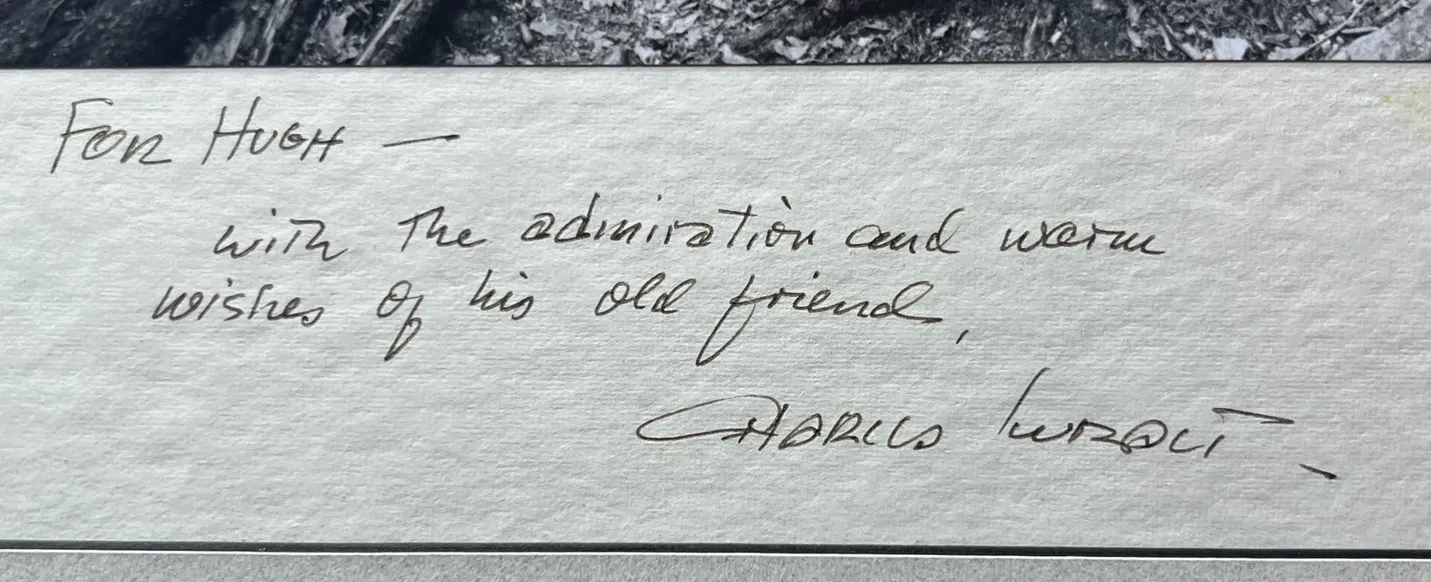 FOR HUGH —
with the admiration and warm
wishes of his old friend,
CHARLES KURALT